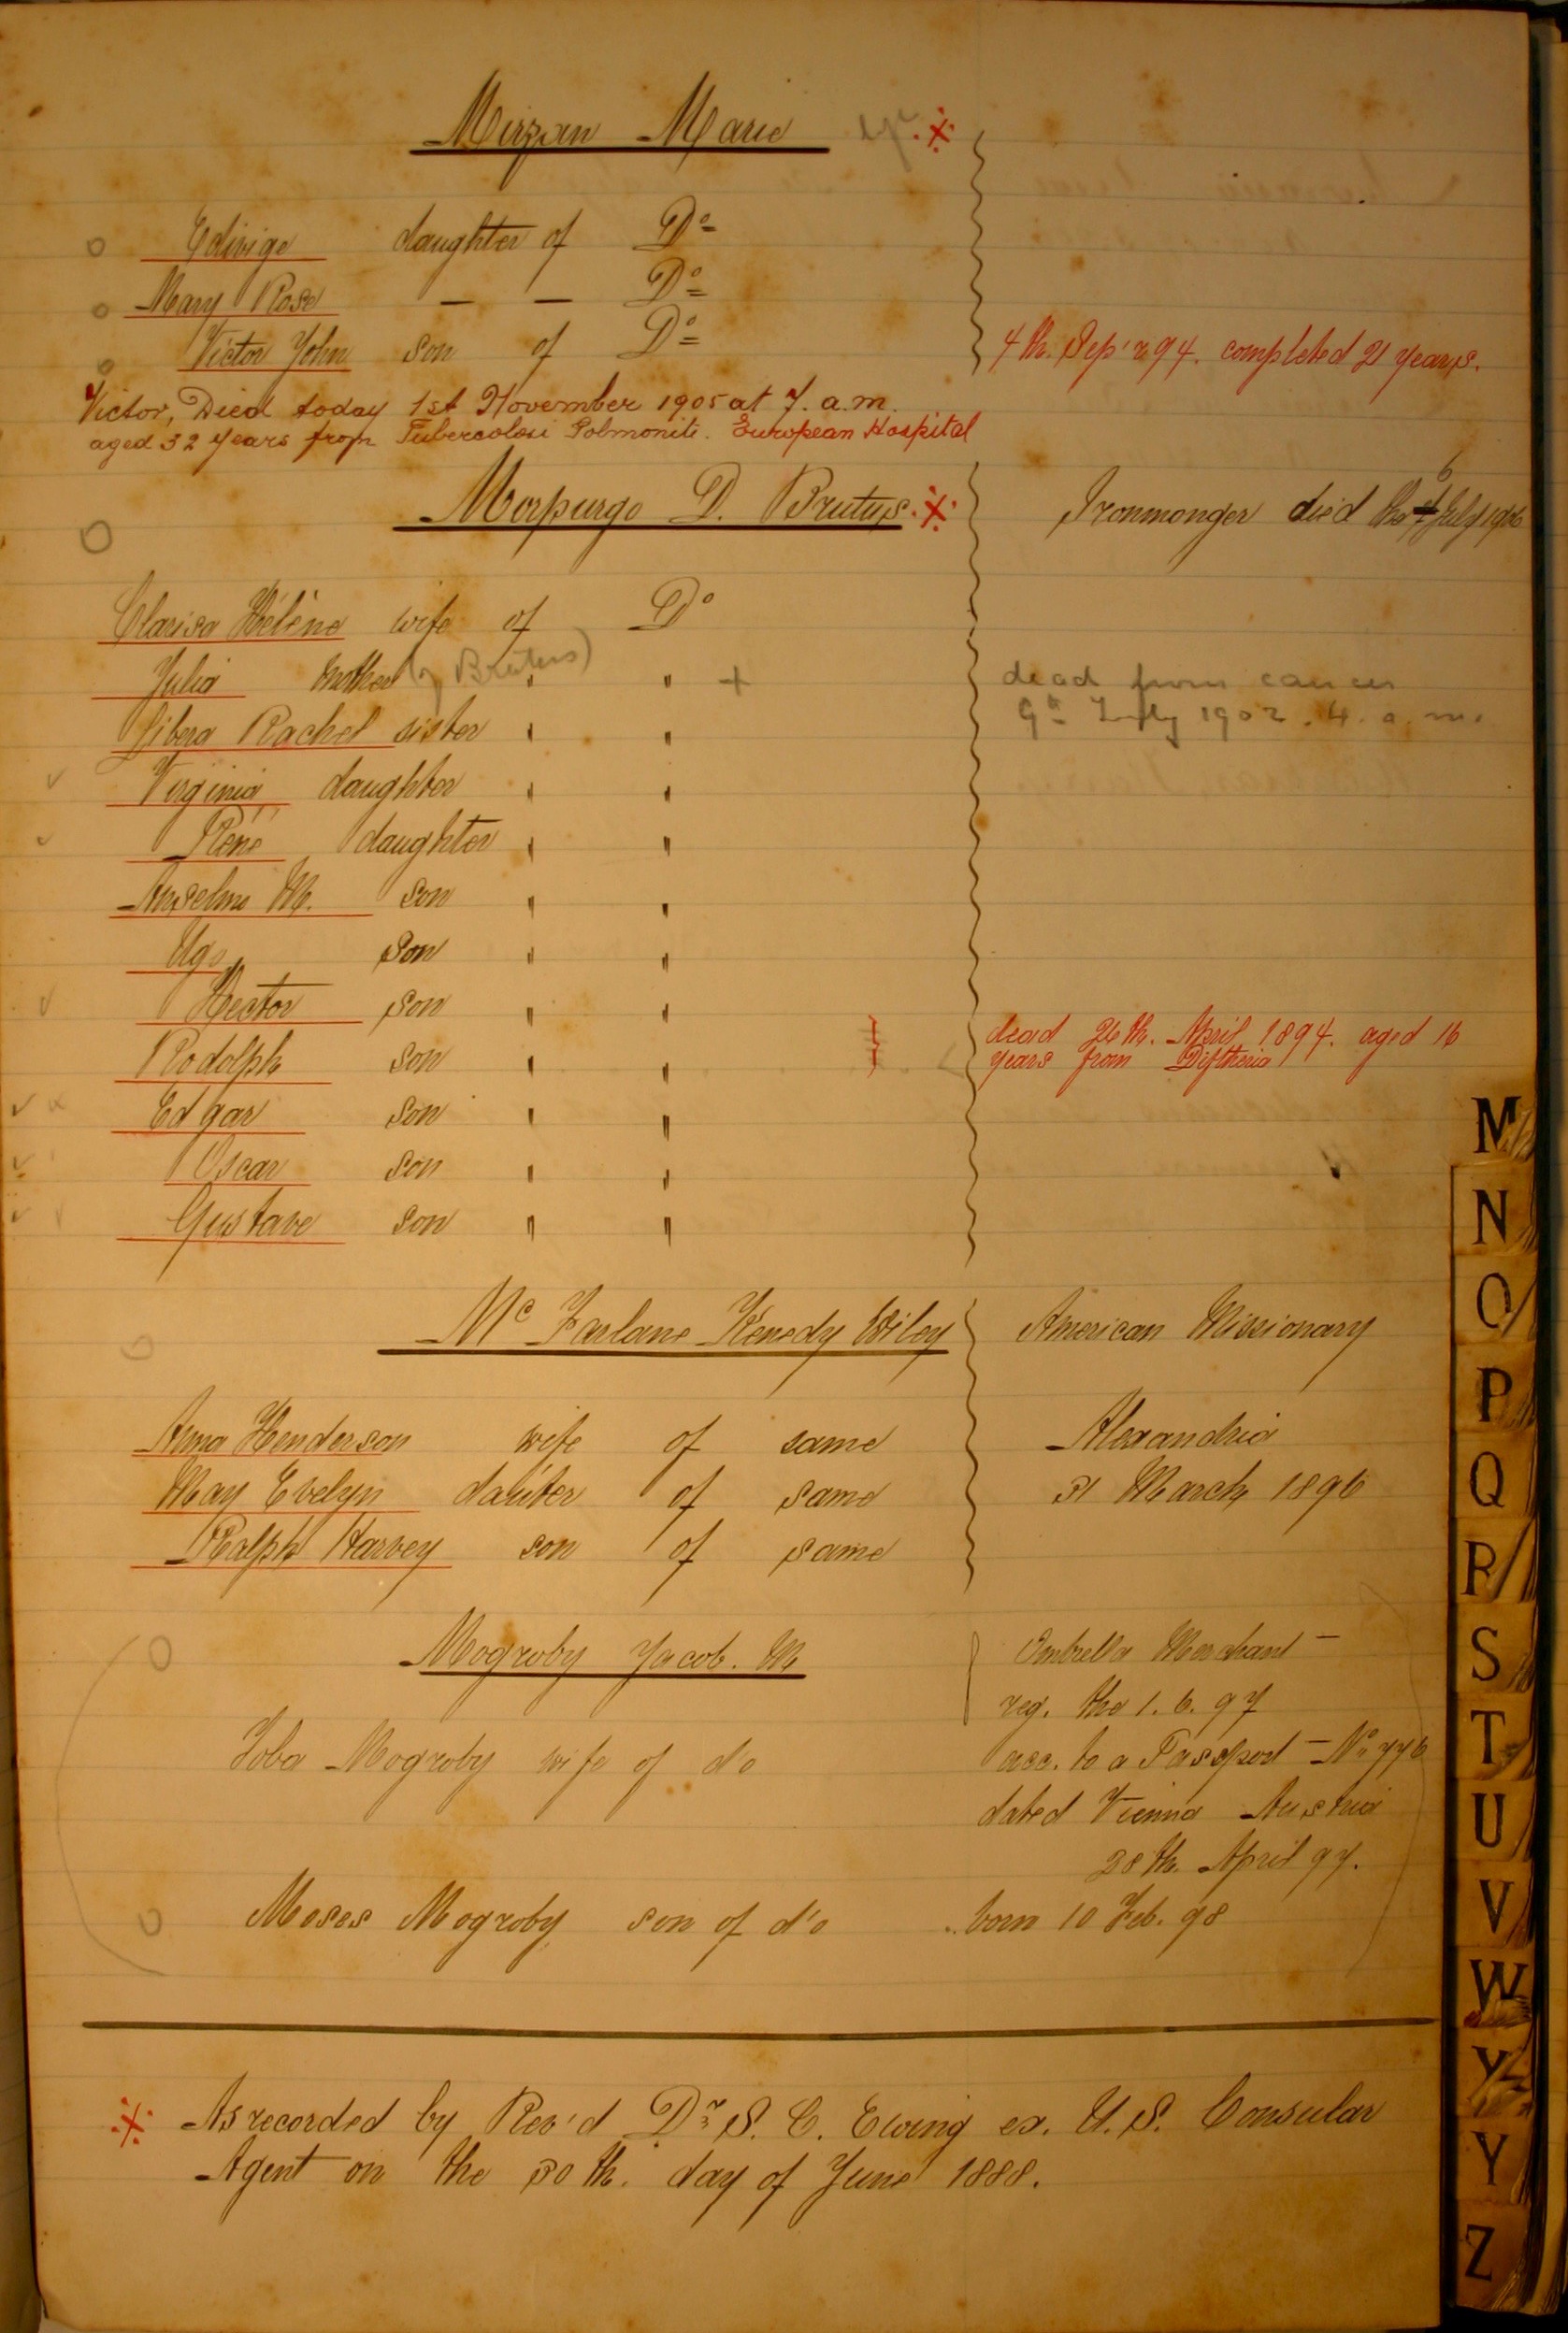 Mirzan Marie
Edwige daughter of Do
Mary Rose — — Do
Victor John son of Do 4th. Sep'r 94. completed 21 years.
Victor, Died today 1st November 1905 at 7. a.m.
aged 32 years from Tubercolosi Polmoniti. European Hospital
Morpurgo D. Brutus Ironmonger died the 6 July 1906
Clarisa Hélène wife of Do
Julia mother (of Brutus) " " + dead from cancer
Libera Rachel sister " " 9th July 1902. 4. a. m.
Virginia daughter " "
René daughter " "
Anselmo M. son " "
Ugo son " "
Hector son " "
dead 26th. April 1894. aged 16
Rodolph son " " years from Diftheria
Edgar son " "
Oscar son " "
Gustave son " "
Mc Farlane Kenedy Wiley American Missionary
Anna Henderson wife of same Alexandria
May Evelyn dauter of same 31 March 1896
Ralph Harvey son of same
Mogroby Jacob. M Ombrella Merchant —
reg. the 1. 6. 97
Toba Mogroby wife of do acc. to a Passport — No 776
dated Vienna Austria
28th. April 97.
Moses Mogroby son of d'o born 10 Feb. 98
As recorded by Rev'd Dr. S. C. Ewing ex. U. S. Consular
Agent on the 30th. day of June 1888.
M
N
O
P
Q
R
S
T
U
V
W
Y
Z